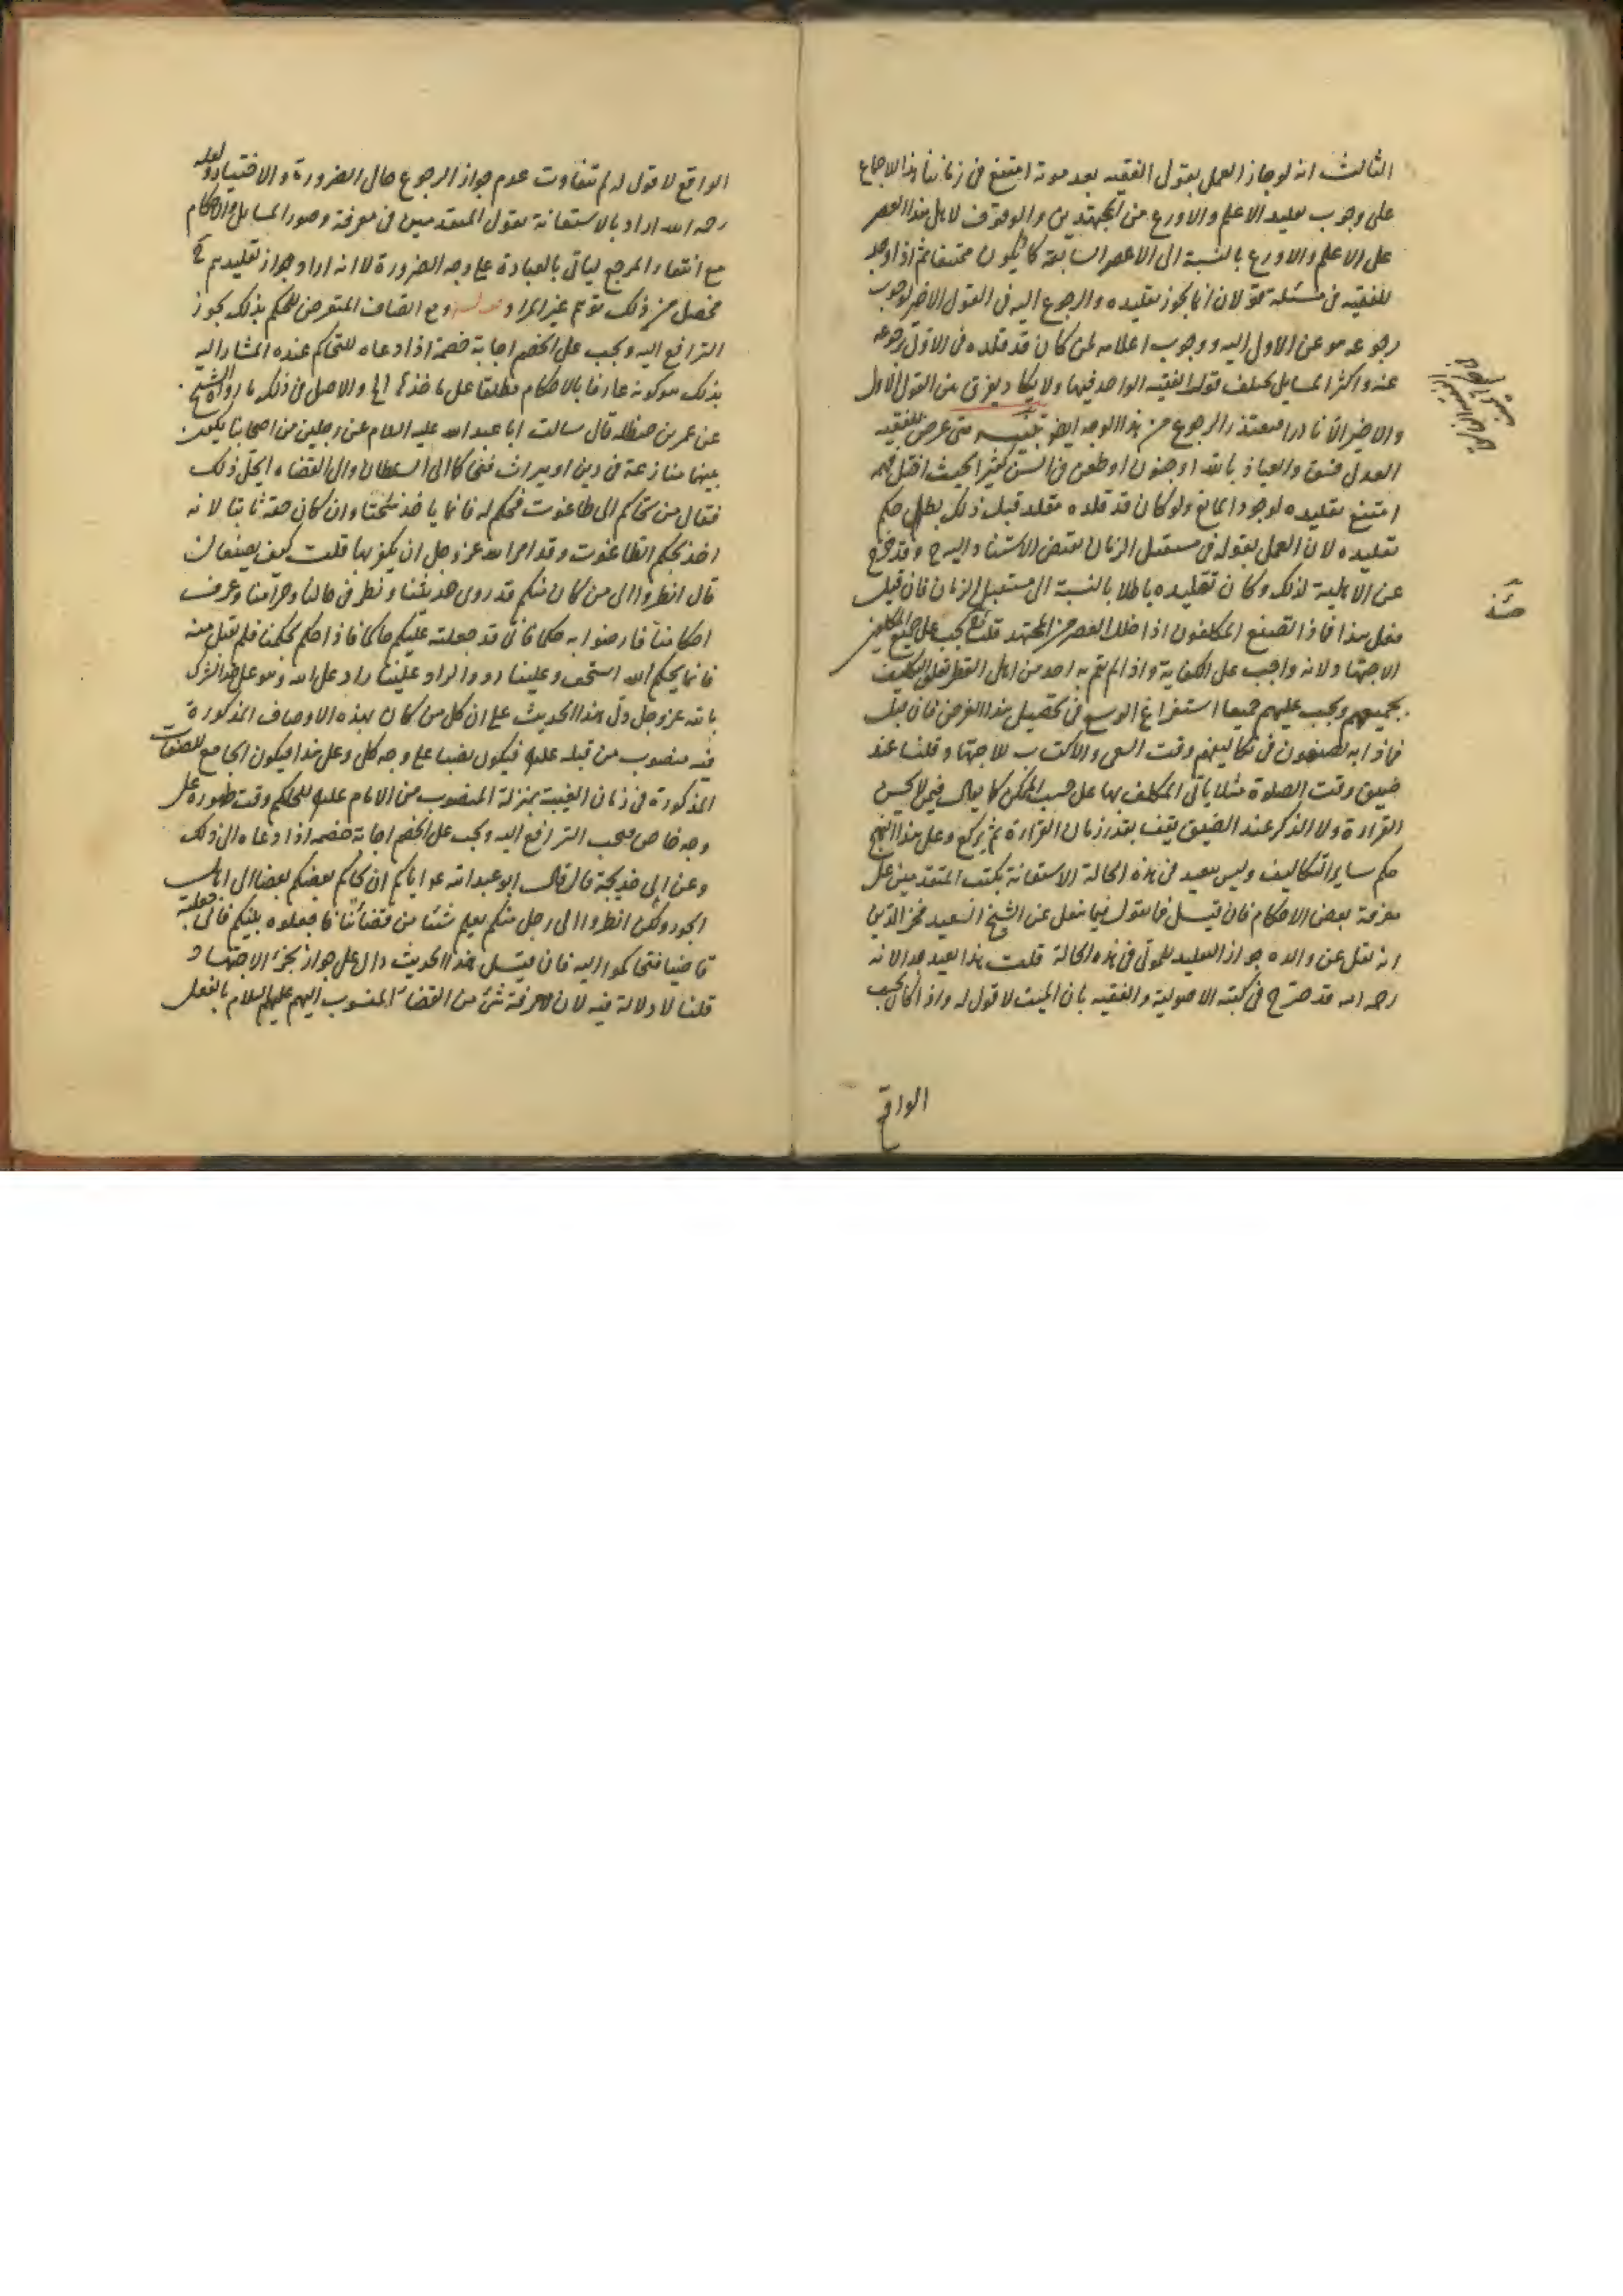 الثالث انه لو جاز العمل بقول الفقيه بعد موته امتنع فى زماننا هذا للاجماع
على وجوب تقليد الاعلم والاورع من المجتهدين والوقوف لاهل هذا العصر
على الاعلم والاورع بالنسبة الى الاعصر السابقة كاد يكون ممتنعا ثم اذا وجد
للفقيه فى مسئلة قولان انما يجوز تقليده والرجوع اليه فى القول الاخير لوجوب
رجوعه هو عن الاول اليه ووجوب اعلامه لمن كان قد قلده فى الاول برجوعه
عنه واكثر المسايل يختلف قول الفقيه الواحد فيها ولا يكاد يفرق بين القول الاول
والاخير الا نادرا فيتعذر الرجوع من هذا الوجه ايضا تنبيه متى عرض للفقيه
العدل فسق والعياذ بالله او جنون او طعن فى السن كثيرا بحيث اختل فهمه
امتنع تقليده لوجود المانع ولو كان قد قلده مقلد قبل ذلك بطل حكم
تقليده لان العمل بقوله فى مستقبل الزمان يقتضى الاستناد اليه ح وقد خرج
عن الاهلية لذلك وكان تقليده باطلا بالنسبة الى مستقبل الزمان فان قيل
فعلى هذا فماذا يصنع المكلفون اذا خلا العصر من المجتهد قلنا ح يجب على جميع المكلفين
الاجتهاد لانه واجب على الكفاية واذا لم يقم به احد من اهل القطر تعلق التكليف
بجميعهم ويجب عليهم جميعا استفراغ الوسع فى تحصيل هذا الفرض فان قيل
فماذا يصنعون فى تكاليفهم وقت السعى والاكتساب للاجتهاد قلنا عند
ضيق وقت الصلوة مثلا ياتى المكلف بها على حسب الممكن كما يقال فيمن لا يحسن
القراءة ولا الذكر عند الضيق يقف بقدر زمان القراءة ثم يركع وعلى هذا النهج
حكم ساير التكاليف وليس ببعيد فى هذه الحالة الاستعانة بكتب المتقدمين على
معرفة بعض الاحكام فان قيل فما تقول فيما ينقل عن الشيخ السعيد فخر الدين
انه نقل عن والده جواز التقليد للموتى فى هذه الحالة قلت هذا بعيد جدا لانه
رحمه الله قد صرح فى كتبه الاصولية والفقيه بان الميت لا قول له واذا كان بحسب
الواقع
الواقع لا قول له لم يتفاوت عدم جواز الرجوع حال الضرورة والاختيار ولعله
رحمه الله اراد بالاستعانة بقول المتقدمين فى معرفة وصور المسايل والاحكام
مع انتفاء المرجع لياتى بالعبادة على وجه الضرورة لا انه اراد جواز تقليدهم ح
فحصل من ذلك توهم غير المراد ومع اتصاف المتعرض للحكم بذلك يجوز
الترافع اليه ويجب على الخصم اجابة خصمه اذا دعاه للتحاكم عنده المشار اليه
بذلك هو كونه عارفا بالاحكام مطلقا على ماخذها الخ والاصل فى ذلك ما رواه الشيخ
عن عمر بن حنظله قال سالت ابا عبد الله عليه السلام عن رجلين من اصحابنا يكون
بينهما منازعة فى دين او ميراث فتحاكما الى السلطان والى القضاه ايحل ذلك
فقال من تحاكم الى طاغوت فحكم له فانما ياخذ سحتا وان كان حقه ثابتا لانه
اخذ بحكم الطاغوت وقد امر الله عز وجل ان يكفر بها قلت كيف يصنعان
قال انظروا الى من كان منكم قد روى حديثنا ونظر فى حلالنا وحرامنا وعرف
احكامنا فارضوا به حكما فانى قد جعلته عليكم حاكما فاذا حكم بحكمنا فلم يقبل منه
فانما بحكم الله استخف وعلينا رد والراد علينا راد على الله وهو على حد الشرك
بالله عز وجل دل هذا الحديث على ان كل من كان بهذه الاوصاف المذكورة
فيه منصوب من قبله عليه فيكون نصبا على وجه كلى وعلى هذا فيكون الجامع للصفات
المذكورة فى زمان الغيبة بمنزلة المنصوب من الامام عليه للحكم وقت ظهوره على
وجه خاص فيجب الترافع اليه ويجب على الخصم اجابة خصمه اذا دعاه الى ذلك
وعن ابى خديجة قال قال ابو عبد الله ع اياكم ان يحاكم بعضكم بعضا الى اهل
الجور ولكن انظروا الى رجل منكم يعلم شيئا من قضائنا فاجعلوه بينكم فانى جعلته
قاضيا فتحاكموا اليه فان قيل هذا الحديث دال على جواز تجزى الاجتهاد
قلنا لا دلالة فيه لان معرفة شئ من القضاء المنسوب اليهم عليهم السلام بالفعل